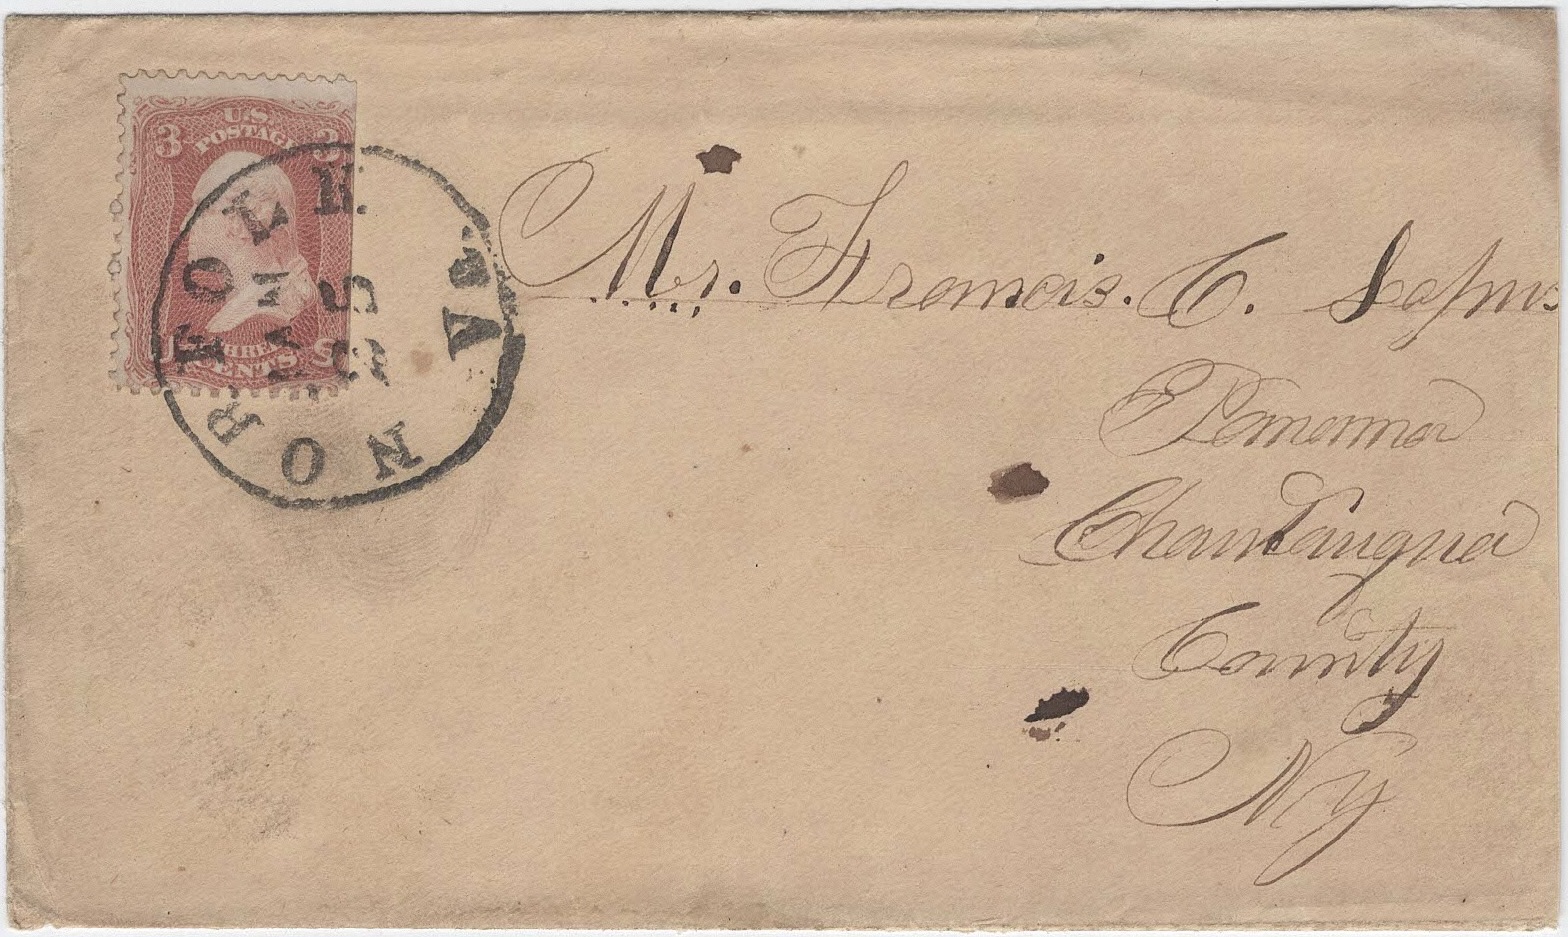 U.S.
POSTAGE
3 3
THREE
CENTS
NORFOLK VA
25
Mr. Francis. C.
Panama
Chautauqua
County
NY